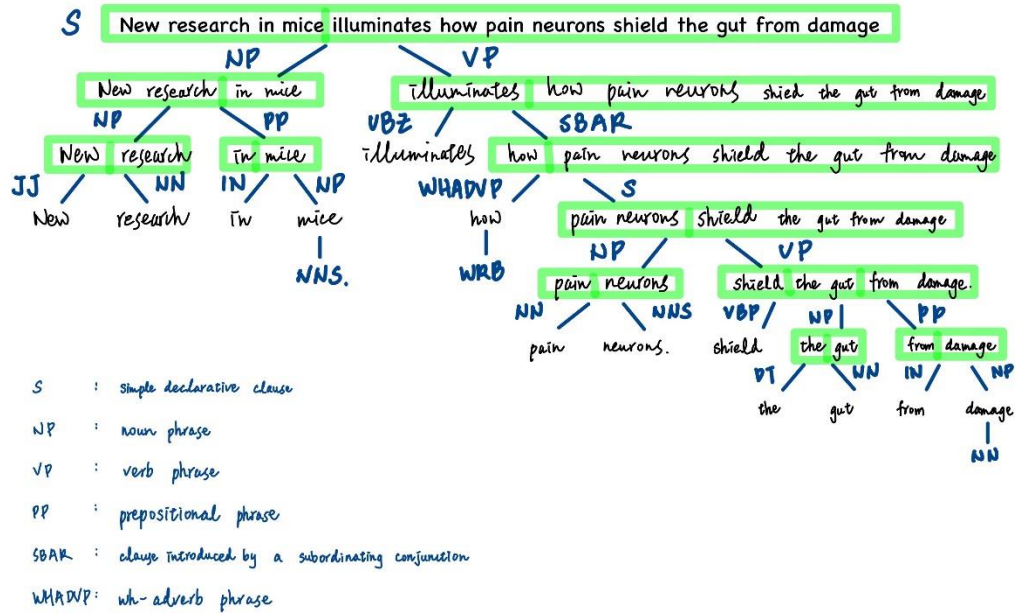 S New research in mice illuminates how pain neurons shield the gut from damage
NP VP
New research in mice illuminates how pain neurons shied the gut from damage
NP PP VBZ SBAR
New research in mice illuminates how pain neurons shield the gut from damage
JJ NN IN NP WHADVP S
New research in mice how pain neurons shield the gut from damage
NP VP
NNS. WRB pain neurons shield the gut from damage.
NN NNS VBP NP PP
pain neurons. shield the gut from damage
DT NN IN NP
the gut from damage
NN
S : simple declarative clause
NP : noun phrase
VP : verb phrase
PP : prepositional phrase
SBAR : clause introduced by a subordinating conjunction
WHADVP: wh-adverb phrase